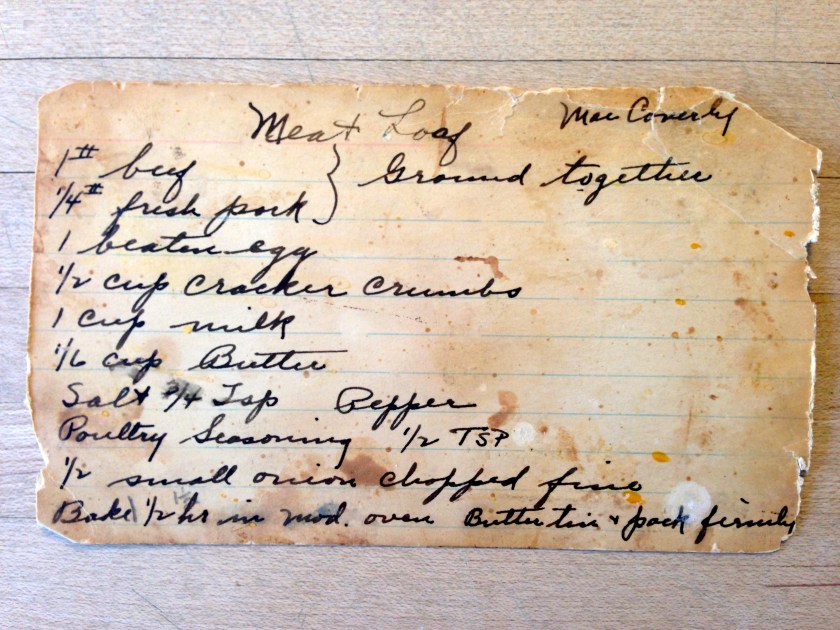 Meat Loaf Mae Coverly
1# beef } Ground together
1/4# fresh pork
1 beaten egg
1/2 cup cracker crumbs
1 cup milk
1/6 cup Butter
Salt 3/4 Tsp Pepper
Poultry Seasoning 1/2 TSP
1/2 small onion chopped fine
Bake 1/2 hr in mod. oven Butter tin + pack firmly